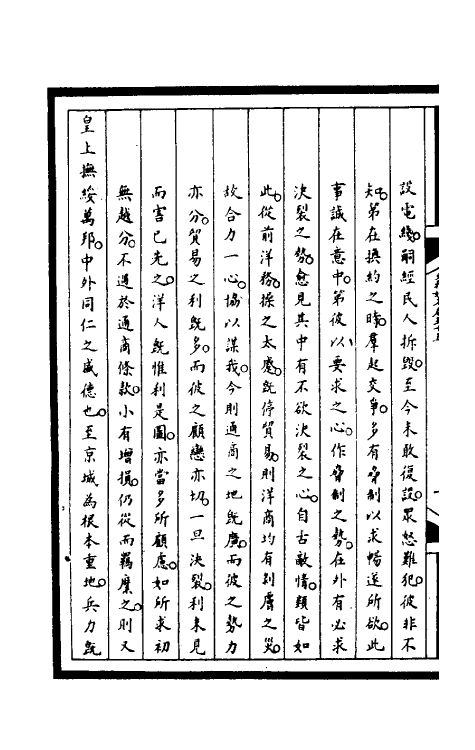 設電綫。嗣經民人拆毁。至今未敢復設。眾怒難犯。彼非不
知。第在換約之時。羣起交爭。多有脅制以求暢遂所欲。此
事誠在意中。第彼以要求之心。作脅制之勢。在外有必求
決裂之勢。愈見其中有不欲決裂之心。自古敵情類皆如
此。從前洋務操之太蹙。既停貿易。則洋商均有剝膚之災。
故合力一心。協以謀我。今則通商之地既廣。而彼之勢力
亦分。貿易之利既多。而彼之顧戀亦切。一旦決裂。利未見
而害已先之。洋人既惟利是圖。亦當多所顧慮。如所求初
無越分。不過於通商條款。小有增損。仍從而羈縻之。則又
皇上撫綏萬邦。中外同仁之盛德也。至京城為根本重地。兵力既